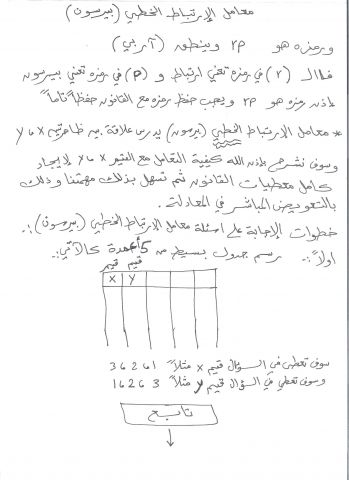 معامل الإرتباط الخطي (بيرسون)
ورمزه هو rp وينطق (آر بي)
فالـ (r) في رمزه تعني ارتباط و (p) في رمزه تعني بيرسون
إذن رمزه هو rp ويجب حفظ رمزه مع القانون حفظاً تاماً
* معامل الإرتباط الخطي (بيرسون) يدرس علاقة بين ظاهرتين x و y
وسوف نشرح بإذن الله كيفية التعامل مع القيم x و y لإيجاد
كامل معطيات القانون ثم تسهل بذلك مهمتنا وذلك
بالتعويض المباشر في المعادلة.
خطوات الإجابة على اسئلة معامل الإرتباط الخطي (بيرسون) :.
أولاً :- رسم جدول بسيط من 5 أعمدة كالآتي :.
قيم قيم
x y
سوف تعطى في السؤال قيم x مثلاً 1 6 2 6 3
وسوف تعطي في السؤال قيم y مثلاً 3 6 2 6 1
تابع